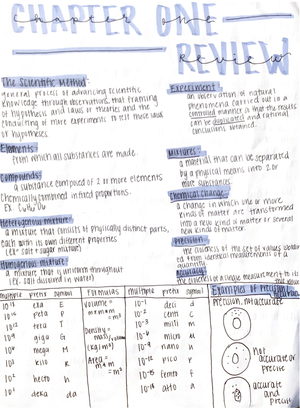 CHAPTER ONE
chapter one
REVIEW
review
The Scientific Method:
general process of advancing scientific
knowledge through observations, that framing
of hypothesis and laws or theories and the
conducting of more experiments to test those laws
or hypotheses
Elements:
from which all substances are made.
Compounds:
a substance composed of 2 or more elements
chemically combined in fixed proportions.
Ex.
Heterogenous mixture:
a mixture that consists of physically distinct parts,
each with its own different properties
(ex: salt + sugar mixture)
Homogenous mixture:
mixture that is uniform throughout
(ex: salt dissolved in water)
Experiment:
an observation of natural
phenomena carried out in a
controlled manner so that the results
can be duplicated and rational
conclusions obtained.
Mixtures:
a material that can be separated
by a physical means into 2 or
more substances
Chemical change:
a change in which one or more
kinds of matter are transformed
into a new kind of matter or several
new kinds of matter.
Precision:
the closeness of the set of values obtain-
ed from identical measurements of a
quantity
Accuracy:
the closeness of a single measurement to its
multiple prefix symbol
10¹⁸ exa E
10¹⁵ peta P
10¹² tera T
10⁹ giga G
10⁶ mega M
10³ kilo K
10² hecto h
10¹ deka da
Formulas
Volume =
m × m × m
= m³
Density =
mass/volume
(kg/m³)
Area =
m × m
= m²
multiple prefix symbol
10⁻¹ deci d
10⁻² centi c
10⁻³ milli m
10⁻⁶ micro
10⁻⁹ nano n
10⁻¹² pico p
10⁻¹⁵ femto f
10⁻¹⁸ atto a
Examples of Precision
Precision, not accurate
not
accurate or
precise
accurate
and
precise